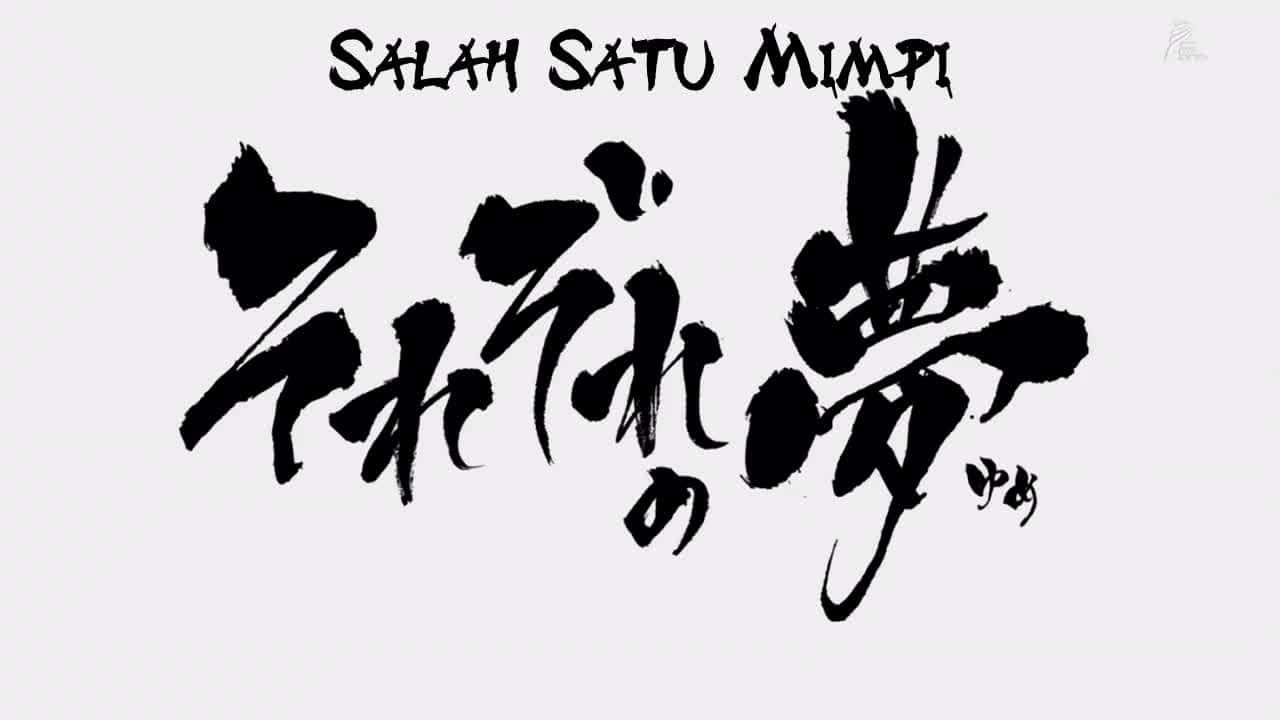 Salah Satu Mimpi
それぞれの夢
ゆめ